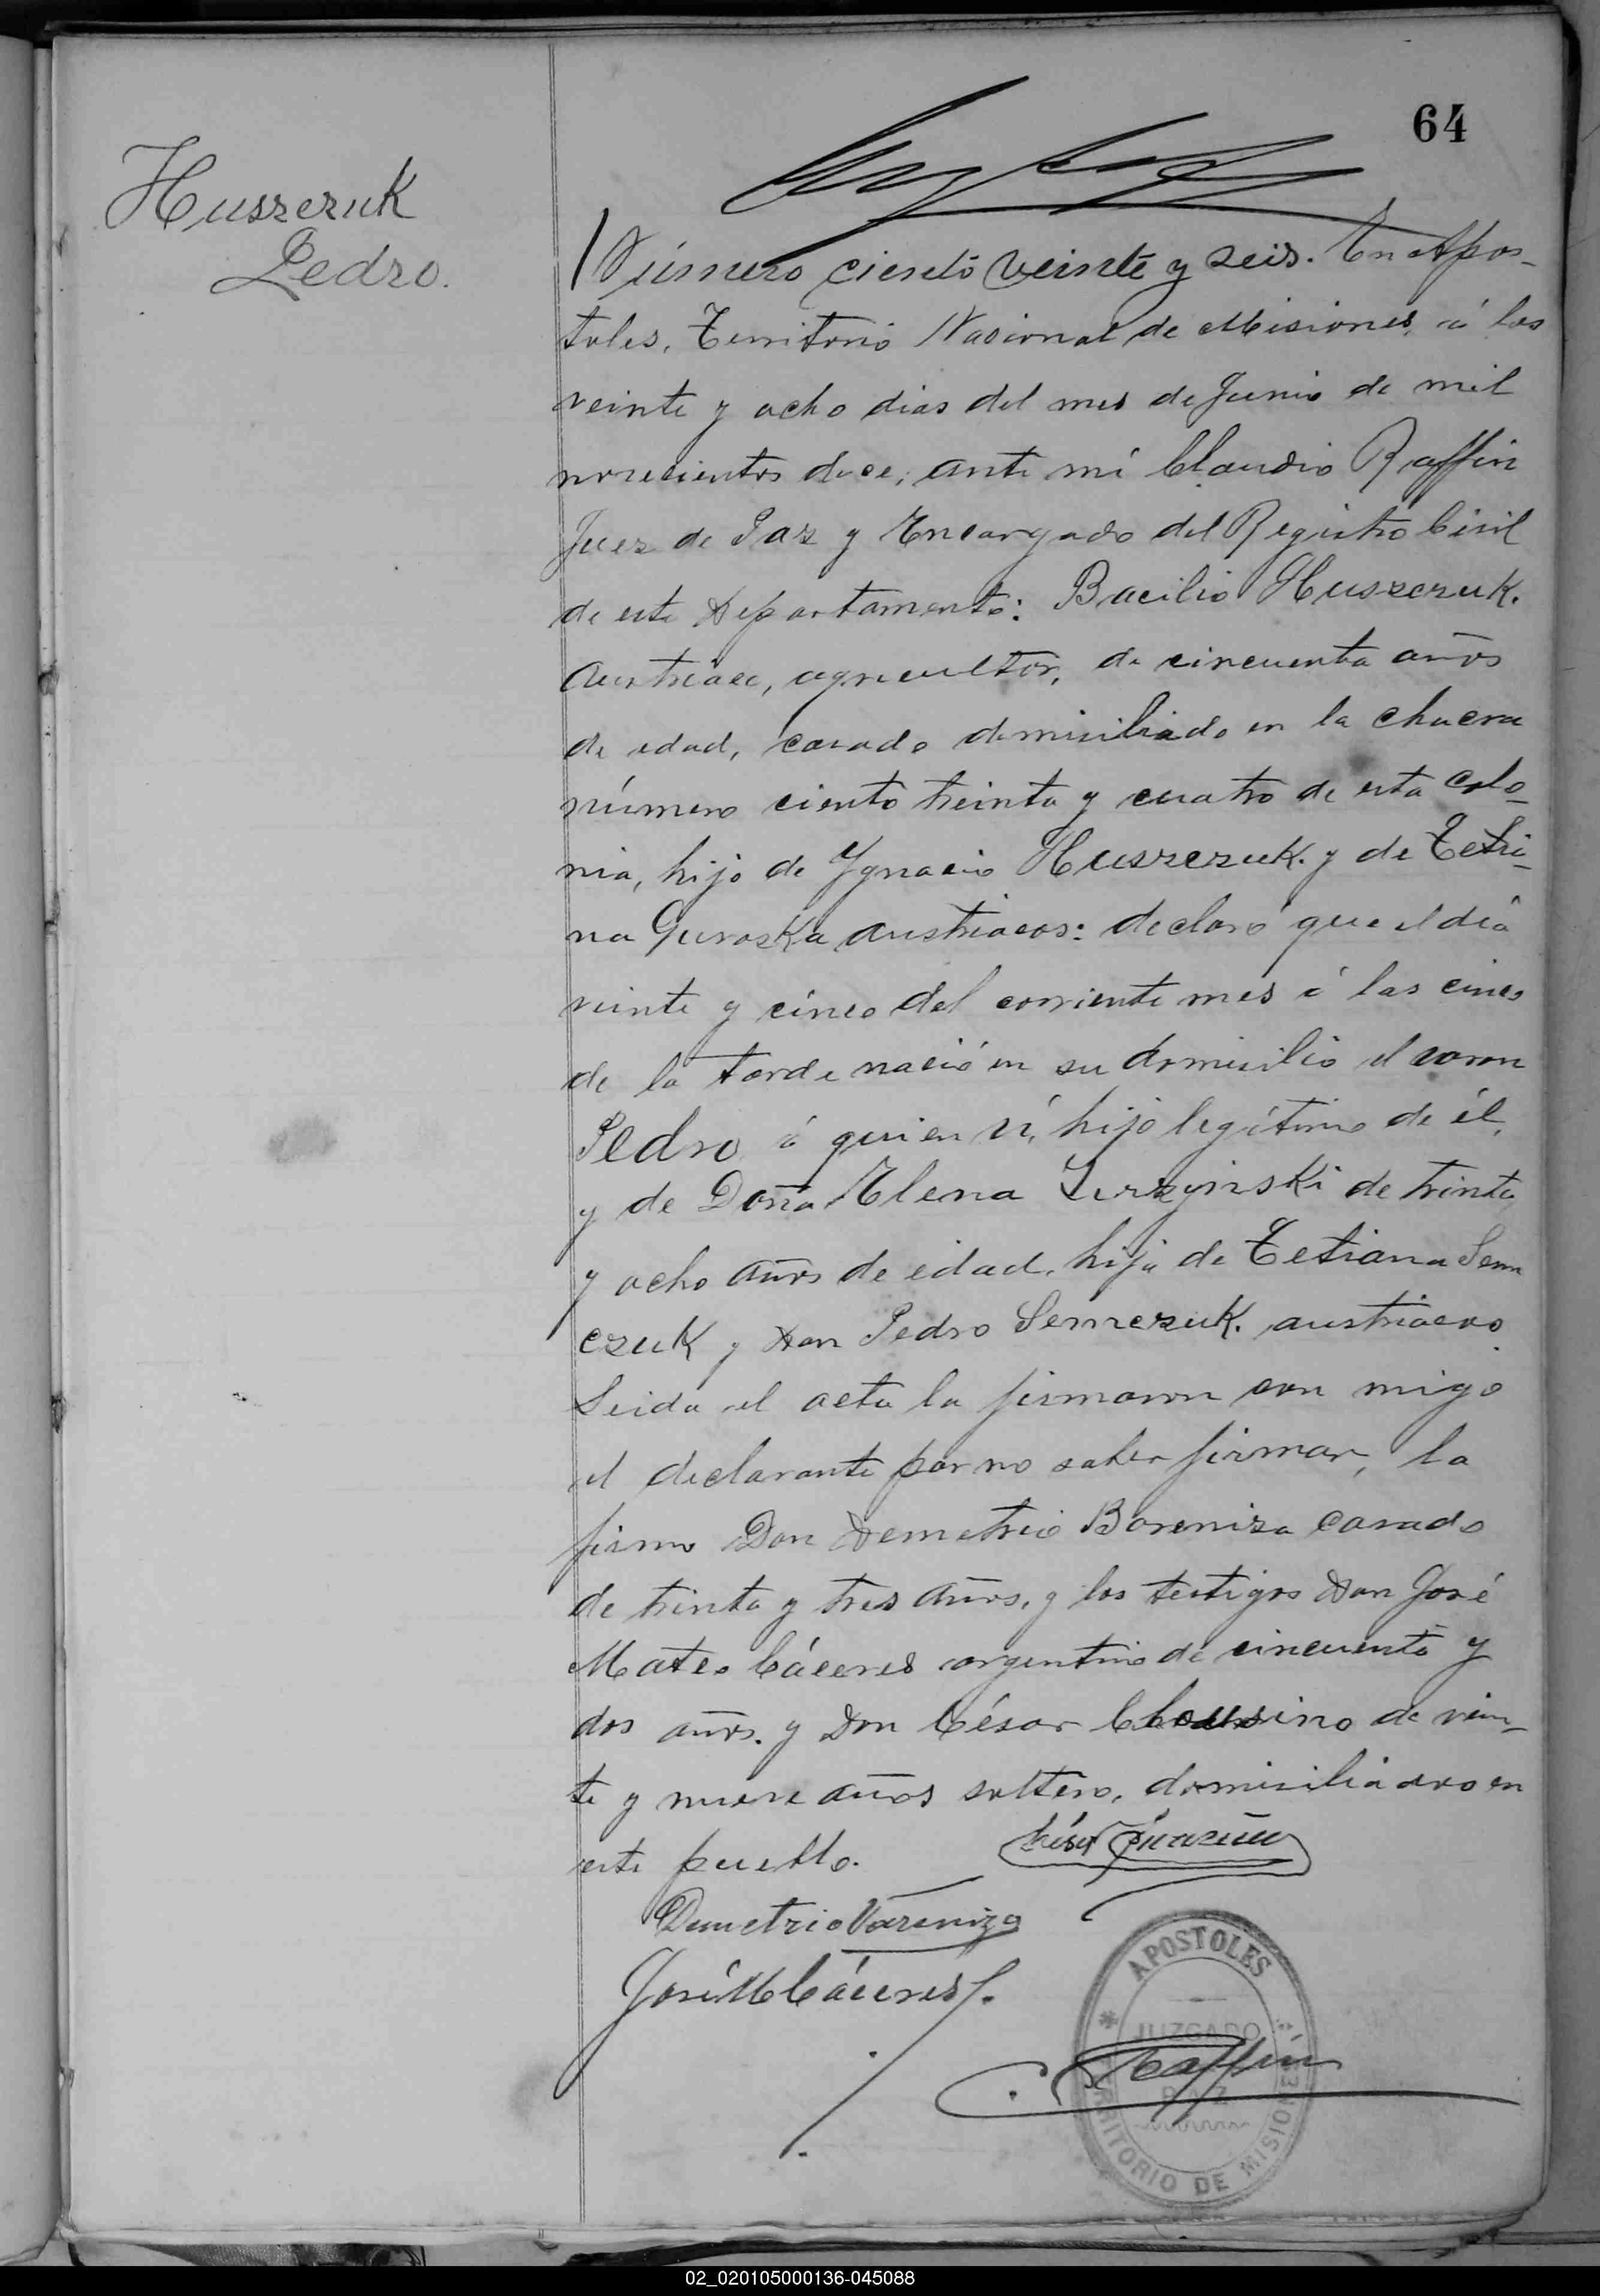 64
Huszczuk
Pedro.
Número ciento veinte y seis. En Apos-
toles, Territorio Nacional de Misiones, á los
veinte y ocho dias del mes de Junio de mil
novecientos doce; ante mí Claudio Raffin
Juez de Paz y Encargado del Registro Civil
de este Departamento: Bacilio Huszczuk.
Austriaco, agricultor, de cincuenta años
de edad, casado domiciliado en la chacra
número ciento treinta y cuatro de esta Colo-
nia, hijo de Ygnacio Huszczuk. y de Tetia-
na Guraska austriacos: declaró que el día
veinte y cinco del corriente mes á las cinco
de la tarde nació en su domicilio el varon
Pedro á quien ví, hijo legítimo de él,
y de Doña Elena de treinta
y ocho años de edad, hija de Tetiana Sem
czuk y Don Pedro Semczuk. austriacos.
Leida el acta la firmaron con migo
el declarante por no saber firmar, la
firmo Don Demetrio Bareniza casado
de treinta y tres años, y los testigos Don José
Mateo Cáceres argentino de cincuenta y
dos años. y Don César de vein-
te y nueve años soltero, domiciliados en
este pueblo.
César
Demetrio Vareniza
José M Cáceres
APOSTOLES
JUZGADO
PAZ
Raffin
TERRITORIO DE MISIONES
02_020105000136-045088